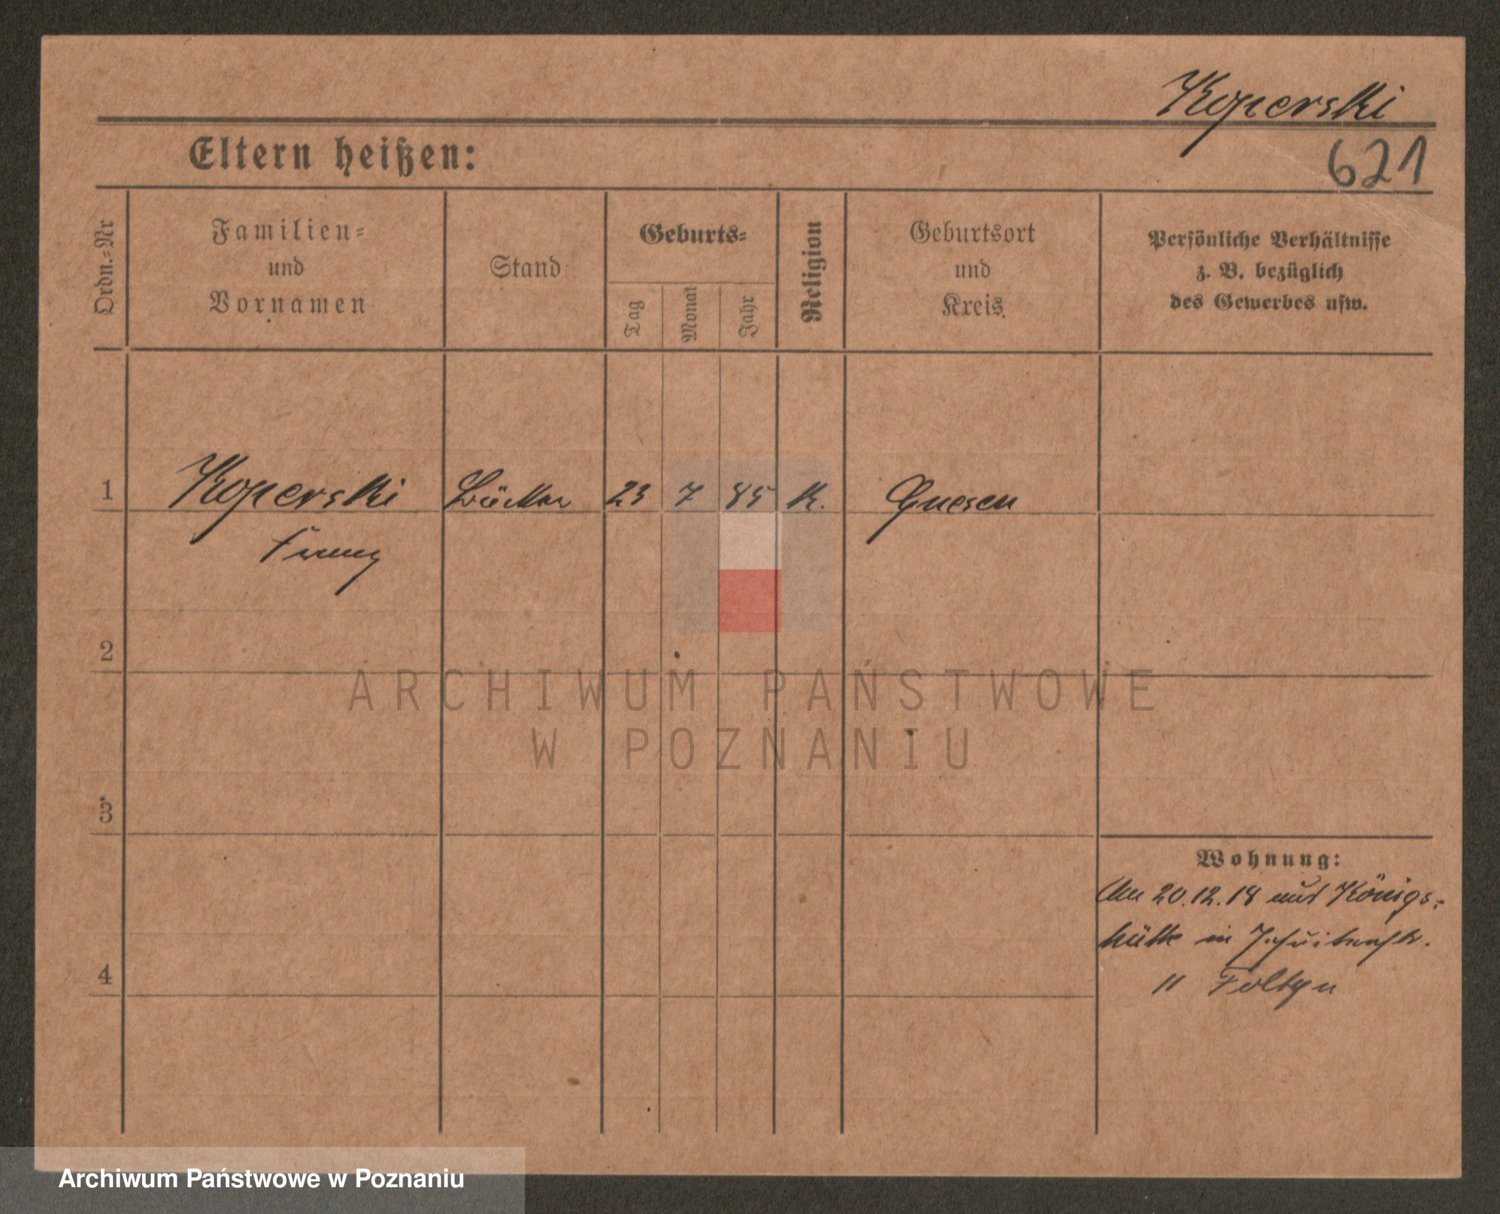 Koperski
621
Eltern heißen:
Ordn.-Nr
Familien-
und
Vornamen
Stand
Geburts-
Tag
Monat
Jahr
Religion
Geburtsort
und
Kreis
Persönliche Verhältnisse
z. B. bezüglich
des Gewerbes usw.
1
Koperski
Bäcker
23
7
85
K.
Gnesen
Franz
2
ARCHIWUM PAŃSTWOWE
W POZNANIU
3
Wohnung:
Am 20.12.18 aus Königs-
hütte in Jesuitenstr.
4
11 Foltyn
Archiwum Państwowe w Poznaniu